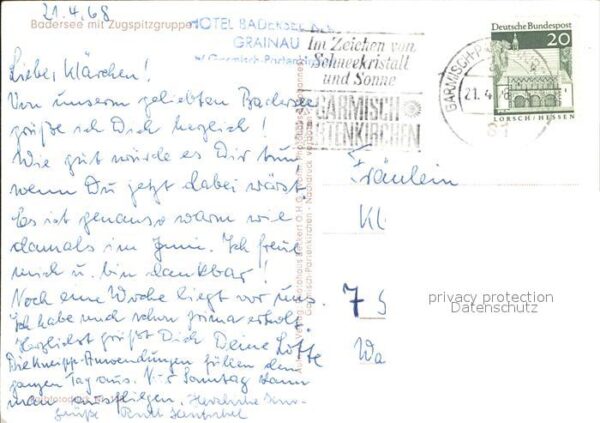 21.4.68
Badersee mit Zugspitzgruppe
HOTEL BADERSEE
GRAINAU
b/Garmisch-Partenkirchen
Im Zeichen von
Schneekristall
und Sonne
GARMISCH
PARTENKIRCHEN
GARMISCH-PA
21.4.
81
Deutsche Bundespost
20
LORSCH/HESSEN
Liebes Klärchen!
Von unserm geliebten Badersee
grüße ich Dich herzlich!
Wie gut würde es Dir tun
wenn Du jetzt dabei wärst.
Es ist genauso warm wie
damals im Juni. Ich freue
mich u. bin dankbar!
Noch eine Woche liegt vor uns.
Ich habe mich schon prima erholt.
Herzlichst grüßt Dich Deine Lotte
Die Kneipp-Anwendungen füllen den
ganzen Tag aus. Nur Sonntag kann
man ausfliegen. Herzliche
grüße Ruth
Fräulein
Kl
7 S
Wa
privacy protection
Datenschutz